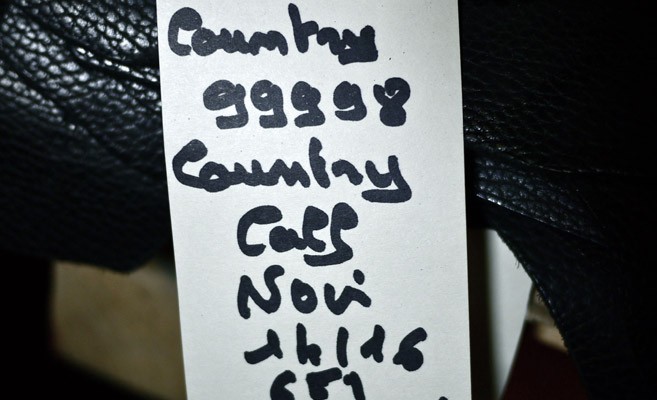 Country
99998
Country
Calf
Novi
14/16